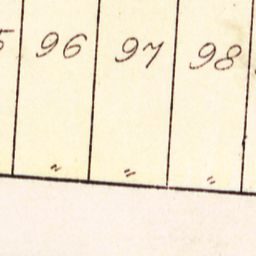 5 96 97 98
" " "